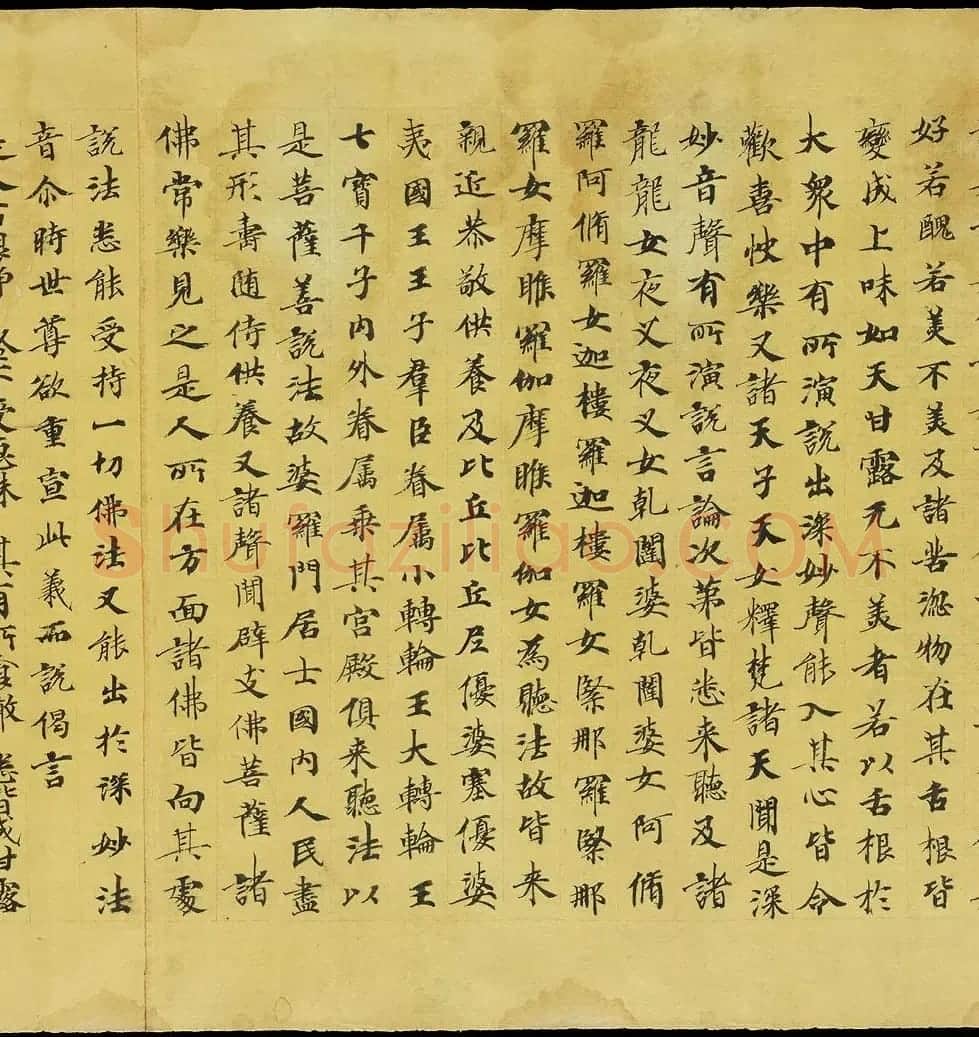 好若醜若美不美及諸苦澁物在其舌根皆
變成上味如天甘露无不美者若以舌根於
大衆中有所演說出深妙聲能入其心皆令
歡喜快樂又諸天子天女釋梵諸天聞是深
妙音聲有所演說言論次第皆悉来聽及諸
龍龍女夜叉夜叉女乹闥婆乹闥婆女阿脩
羅阿脩羅女迦樓羅迦樓羅女緊那羅緊那
羅女摩睺羅伽摩睺羅伽女為聽法故皆来
親近恭敬供養及比丘比丘尼優婆塞優婆
夷國王王子羣臣眷属小轉輪王大轉輪王
七寳千子内外眷属乘其宫殿俱来聽法以
是菩薩善說法故婆羅門居士國内人民盡
其形壽随侍供養又諸聲聞辟支佛菩薩諸
佛常樂見之是人所在方面諸佛皆向其處
說法悉能受持一切佛法又能出於深妙法
音尒時世尊欲重宣此義而說偈言
Shufaziliao.COM